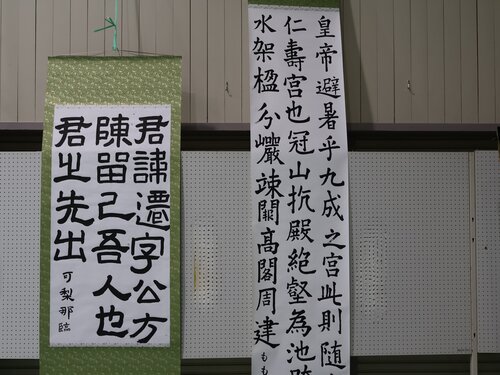 皇帝避暑乎九成之宮此則随
仁壽宮也冠山抗殿絶壑為池跨
水架楹分巗竦闕高閣周建
もも
君諱遷字公方
陳留己吾人也
君之先出
可梨那臨